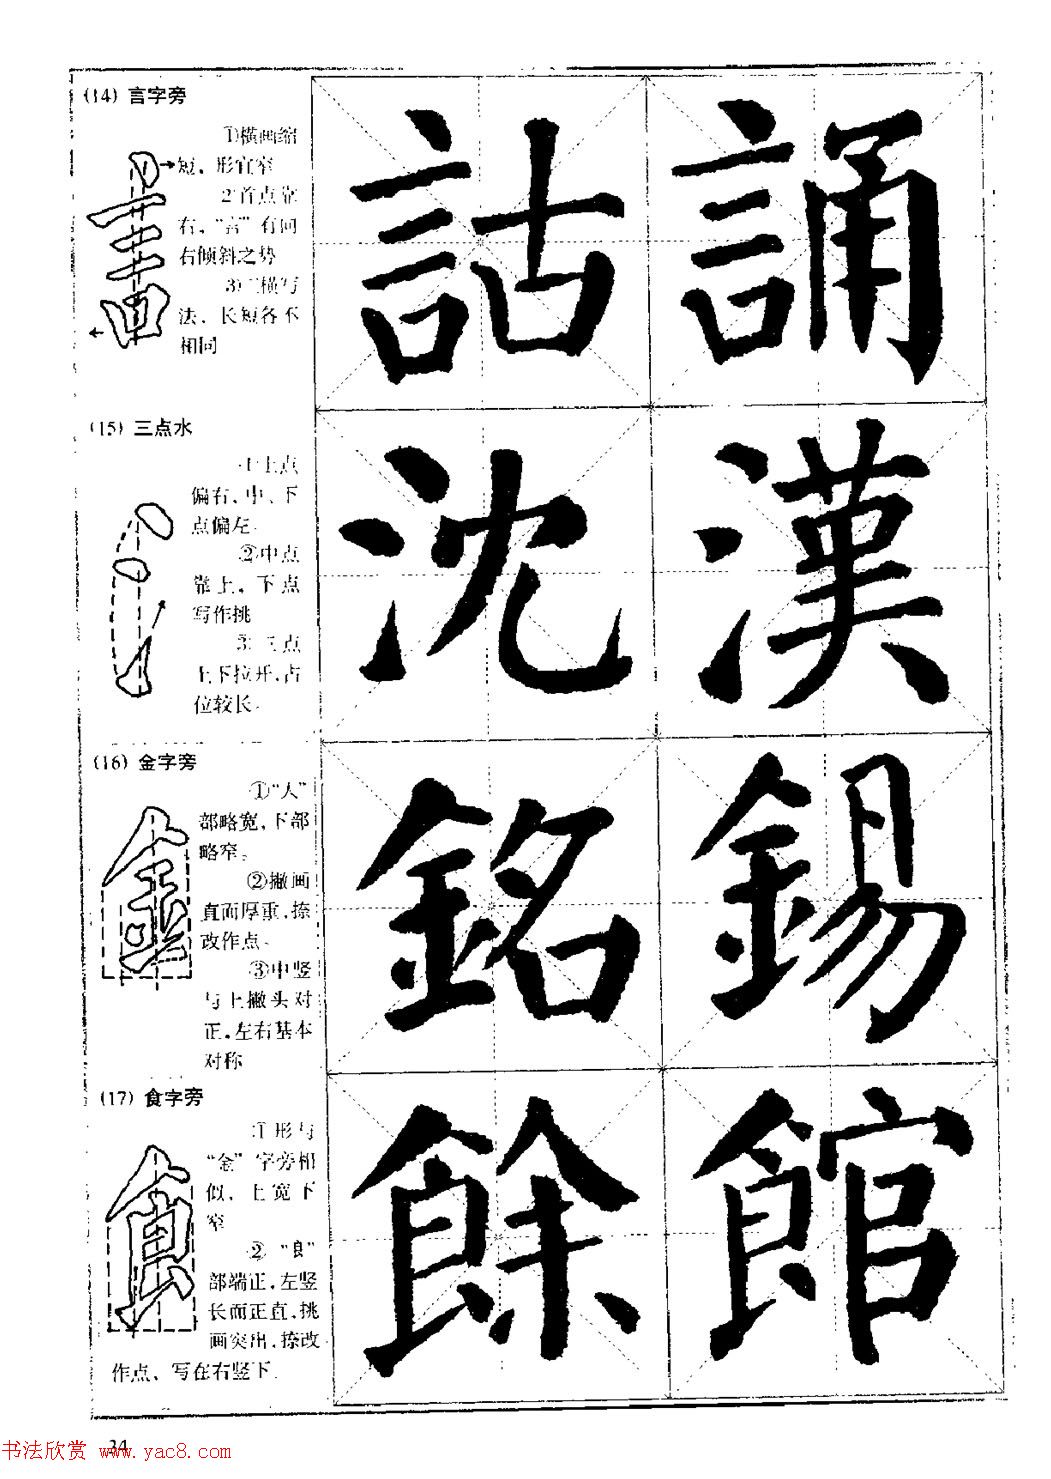 (14) 言字旁
①横画缩
短，形宜窄
②首点靠
右，“言”有向
右倾斜之势
③三横写
法，长短各不
相同
詁 誦
(15) 三点水
①上点
偏右，中、下
点偏左。
②中点
靠上，下点
写作挑
③三点
上下拉开，占
位较长。
沈 漢
(16) 金字旁
①“人”
部略宽，下部
略窄。
②撇画
直而厚重，捺
改作点。
③中竖
与上撇头对
正，左右基本
对称
銘 錫
(17) 食字旁
①形与
“金”字旁相
似，上宽下
窄
②“良”
部端正，左竖
长而正直，挑
画突出，捺改
作点，写在右竖下。
餘 館
34
书法欣赏 www.yac8.com